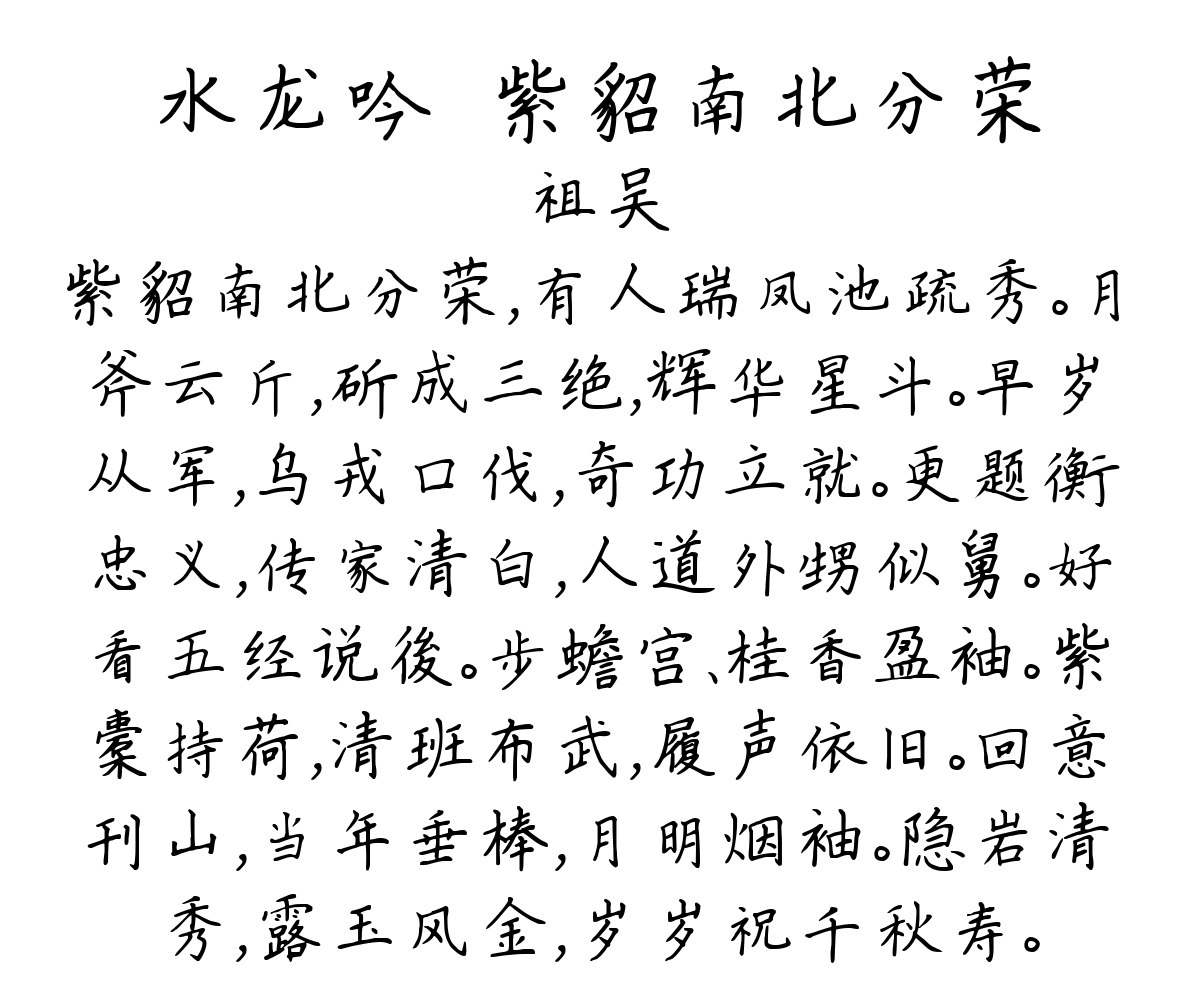 水龙吟 紫貂南北分荣
祖吴
紫貂南北分荣,有人瑞凤池疏秀。月
斧云斤,斫成三绝,辉华星斗。早岁
从军,乌戎口伐,奇功立就。更题衡
忠义,传家清白,人道外甥似舅。好
看五经说後。步蟾宫、桂香盈袖。紫
橐持荷,清班布武,履声依旧。回意
刊山,当年垂棒,月明烟袖。隐岩清
秀,露玉风金,岁岁祝千秋寿。